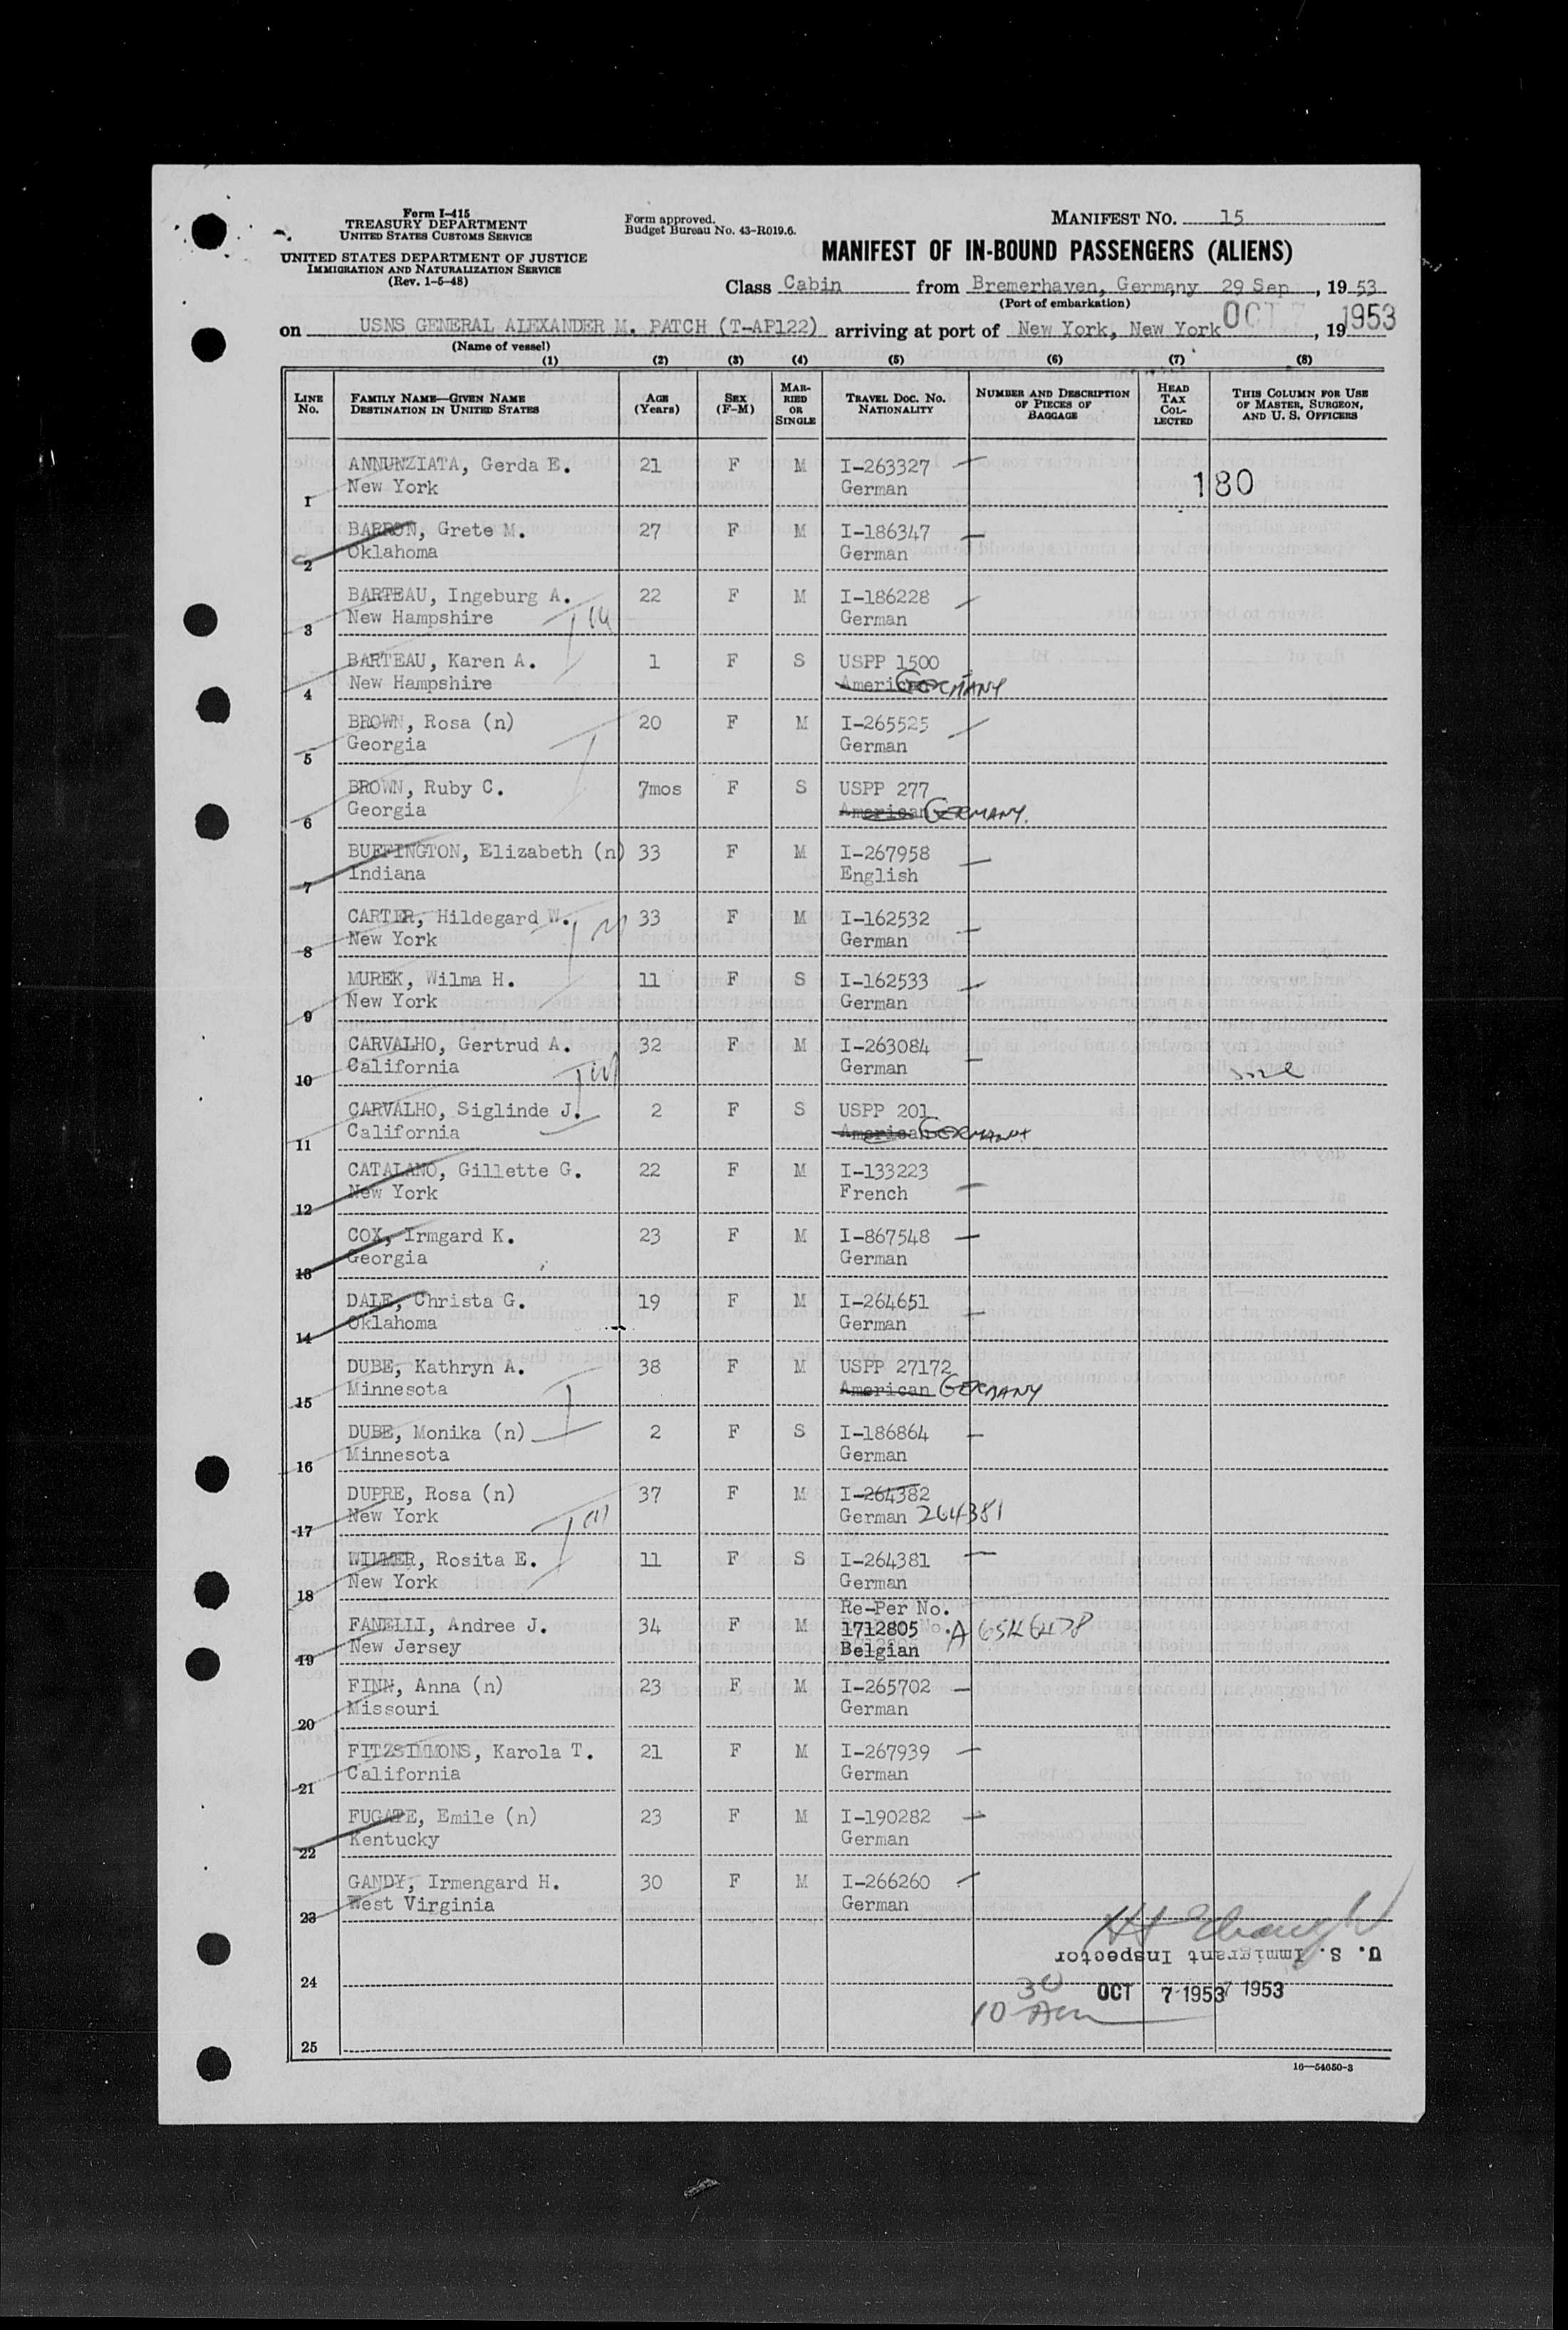 Form I-415
TREASURY DEPARTMENT
UNITED STATES CUSTOMS SERVICE
UNITED STATES DEPARTMENT OF JUSTICE
IMMIGRATION AND NATURALIZATION SERVICE
(Rev. 1-5-48)
Form approved.
Budget Bureau No. 43-R019.6.
MANIFEST NO. 15
MANIFEST OF IN-BOUND PASSENGERS (ALIENS)
Class Cabin from Bremerhaven, Germany 29 Sep, 19 53
(Port of embarkation)
on USNS GENERAL ALEXANDER M. PATCH (T-AP122) arriving at port of New York, New York OCT 7, 19 1953
(Name of vessel)
(1) (2) (3) (4) (5) (6) (7) (8)
LINE No. FAMILY NAME—GIVEN NAME DESTINATION IN UNITED STATES AGE (Years) SEX (F-M) MARRIED OR SINGLE TRAVEL DOC. NO. NATIONALITY NUMBER AND DESCRIPTION OF PIECES OF BAGGAGE HEAD TAX COLLECTED THIS COLUMN FOR USE OF MASTER, SURGEON, AND U. S. OFFICERS
ANNUNZIATA, Gerda E. 21 F M I-263327
1 New York German 180
BARRON, Grete M. 27 F M I-186347
2 Oklahoma German
BARTEAU, Ingeburg A. 22 F M I-186228
3 New Hampshire German
BARTEAU, Karen A. 1 F S USPP 1500
4 New Hampshire American GERMANY
BROWN, Rosa (n) 20 F M I-265525
5 Georgia German
BROWN, Ruby C. 7mos F S USPP 277
6 Georgia American GERMANY.
BUFFINGTON, Elizabeth (n) 33 F M I-267958
7 Indiana English
CARTER, Hildegard W. 33 F M I-162532
8 New York German
MUREK, Wilma H. 11 F S I-162533
9 New York German
CARVALHO, Gertrud A. 32 F M I-263084
10 California German
CARVALHO, Siglinde J. 2 F S USPP 201
11 California American GERMANY
CATALANO, Gillette G. 22 F M I-133223
12 New York French
COX, Irmgard K. 23 F M I-867548
13 Georgia German
DALE, Christa G. 19 F M I-264651
14 Oklahoma German
DUBE, Kathryn A. 38 F M USPP 27172
15 Minnesota American GERMANY
DUBE, Monika (n) 2 F S I-186864
16 Minnesota German
DUPRE, Rosa (n) 37 F M I-264382
17 New York German 264381
WILMER, Rosita E. 11 F S I-264381
18 New York German
Re-Per No.
FANELLI, Andree J. 34 F M 1712805
19 New Jersey Belgian
FINN, Anna (n) 23 F M I-265702
20 Missouri German
FITZSIMMONS, Karola T. 21 F M I-267939
21 California German
FUGATE, Emile (n) 23 F M I-190282
22 Kentucky German
GANDY, Irmengard H. 30 F M I-266260
23 West Virginia German
U. S. Immigrant Inspector
24
OCT 7 1953 7 1953
10 30 AM
25
16—54650-3